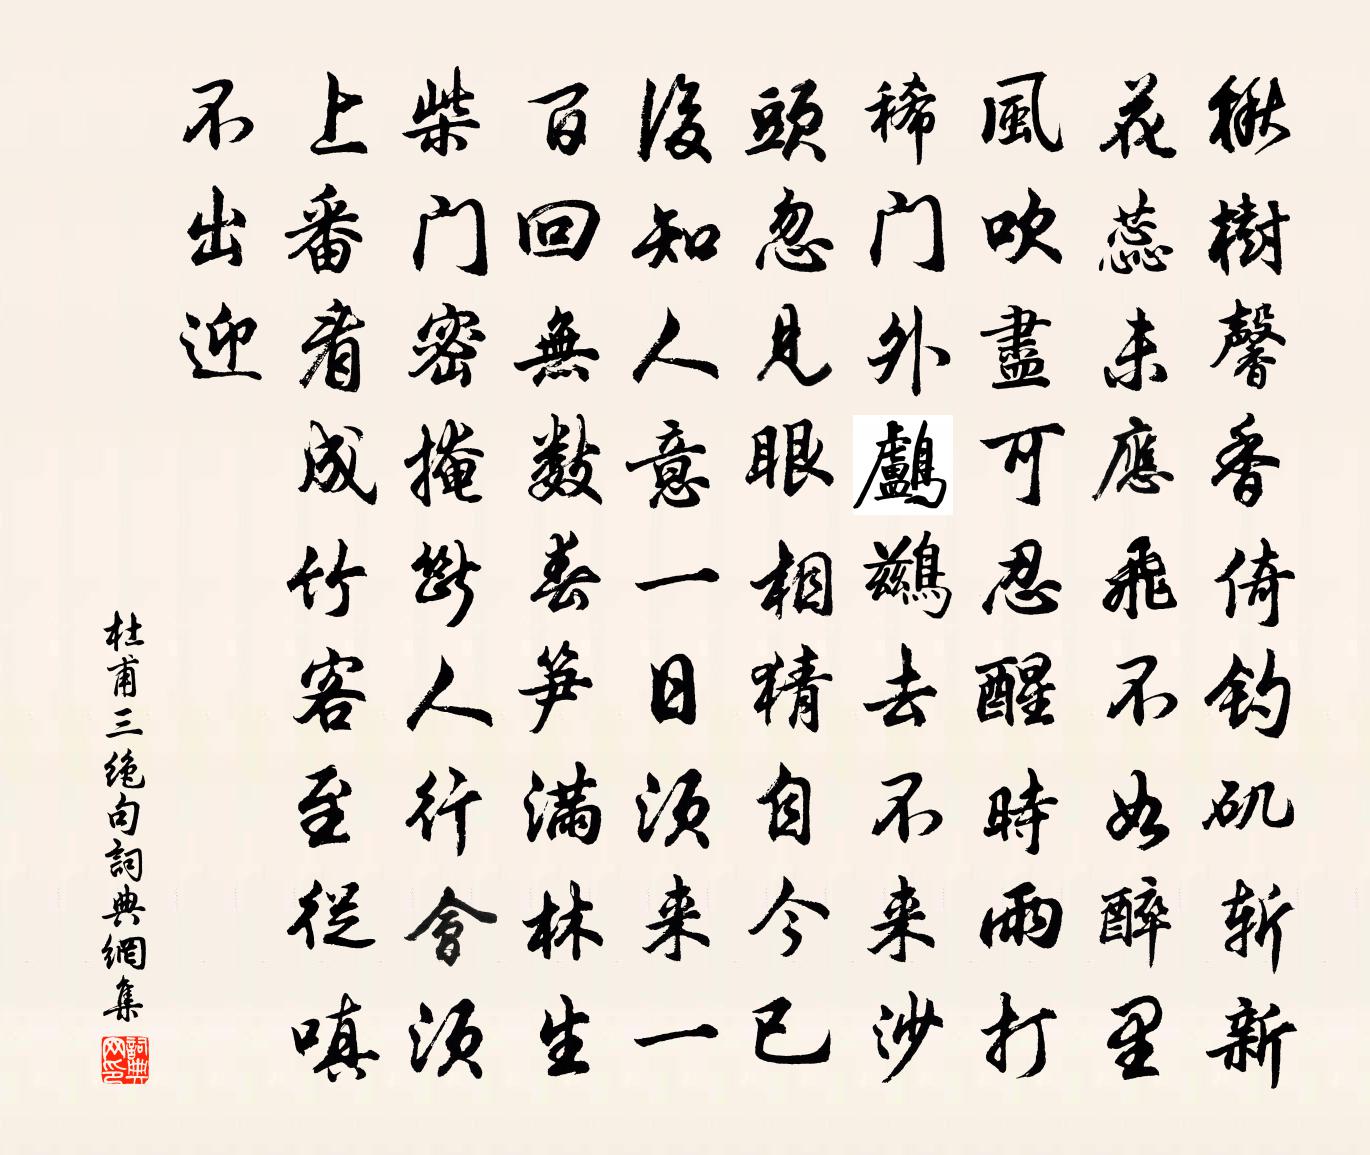 楸樹馨香倚釣矶斬新
花蕊未應飛不如醉里
風吹盡可忍醒時雨打
稀門外鸕鷀去不来沙
頭忽見眼相猜自今已
後知人意一日須来一
百回無數春笋滿林生
柴門密掩斷人行會須
上番看成竹客至從嗔
不出迎
杜甫三絶句詞典網集
詞典网印